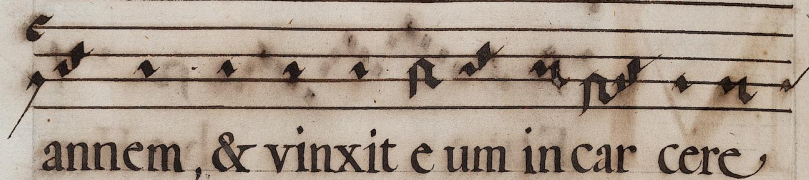 annem, & vinxit e um in car cere